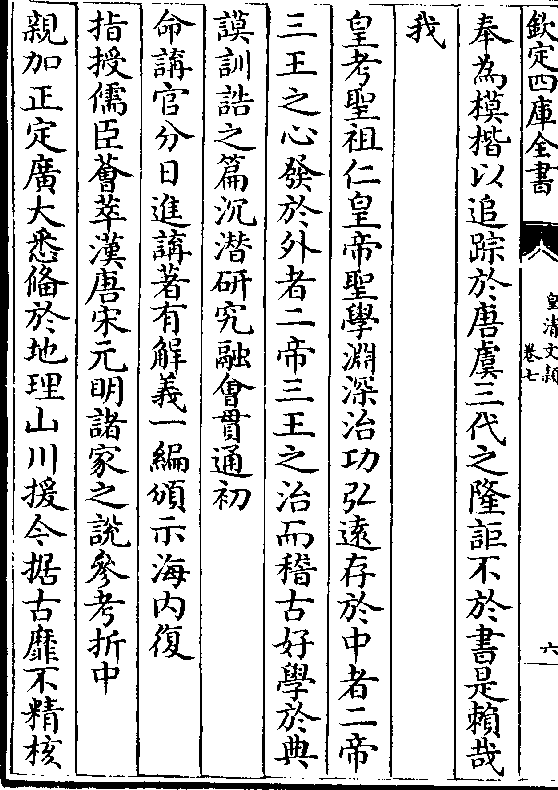 欽定四庫全書
皇清文頴
卷七
六
奉為模楷以追踪於唐虞三代之隆詎不於書是賴哉
我
皇考聖祖仁皇帝聖學淵深治功弘遠存於中者二帝
三王之心發於外者二帝三王之治而稽古好學於典
謨訓誥之篇沉潛研究融會貫通初
命講官分日進講著有解義一編頒示海内復
指授儒臣薈萃漢唐宋元明諸家之說參考折中
親加正定廣大悉備於地理山川援今据古靡不精核